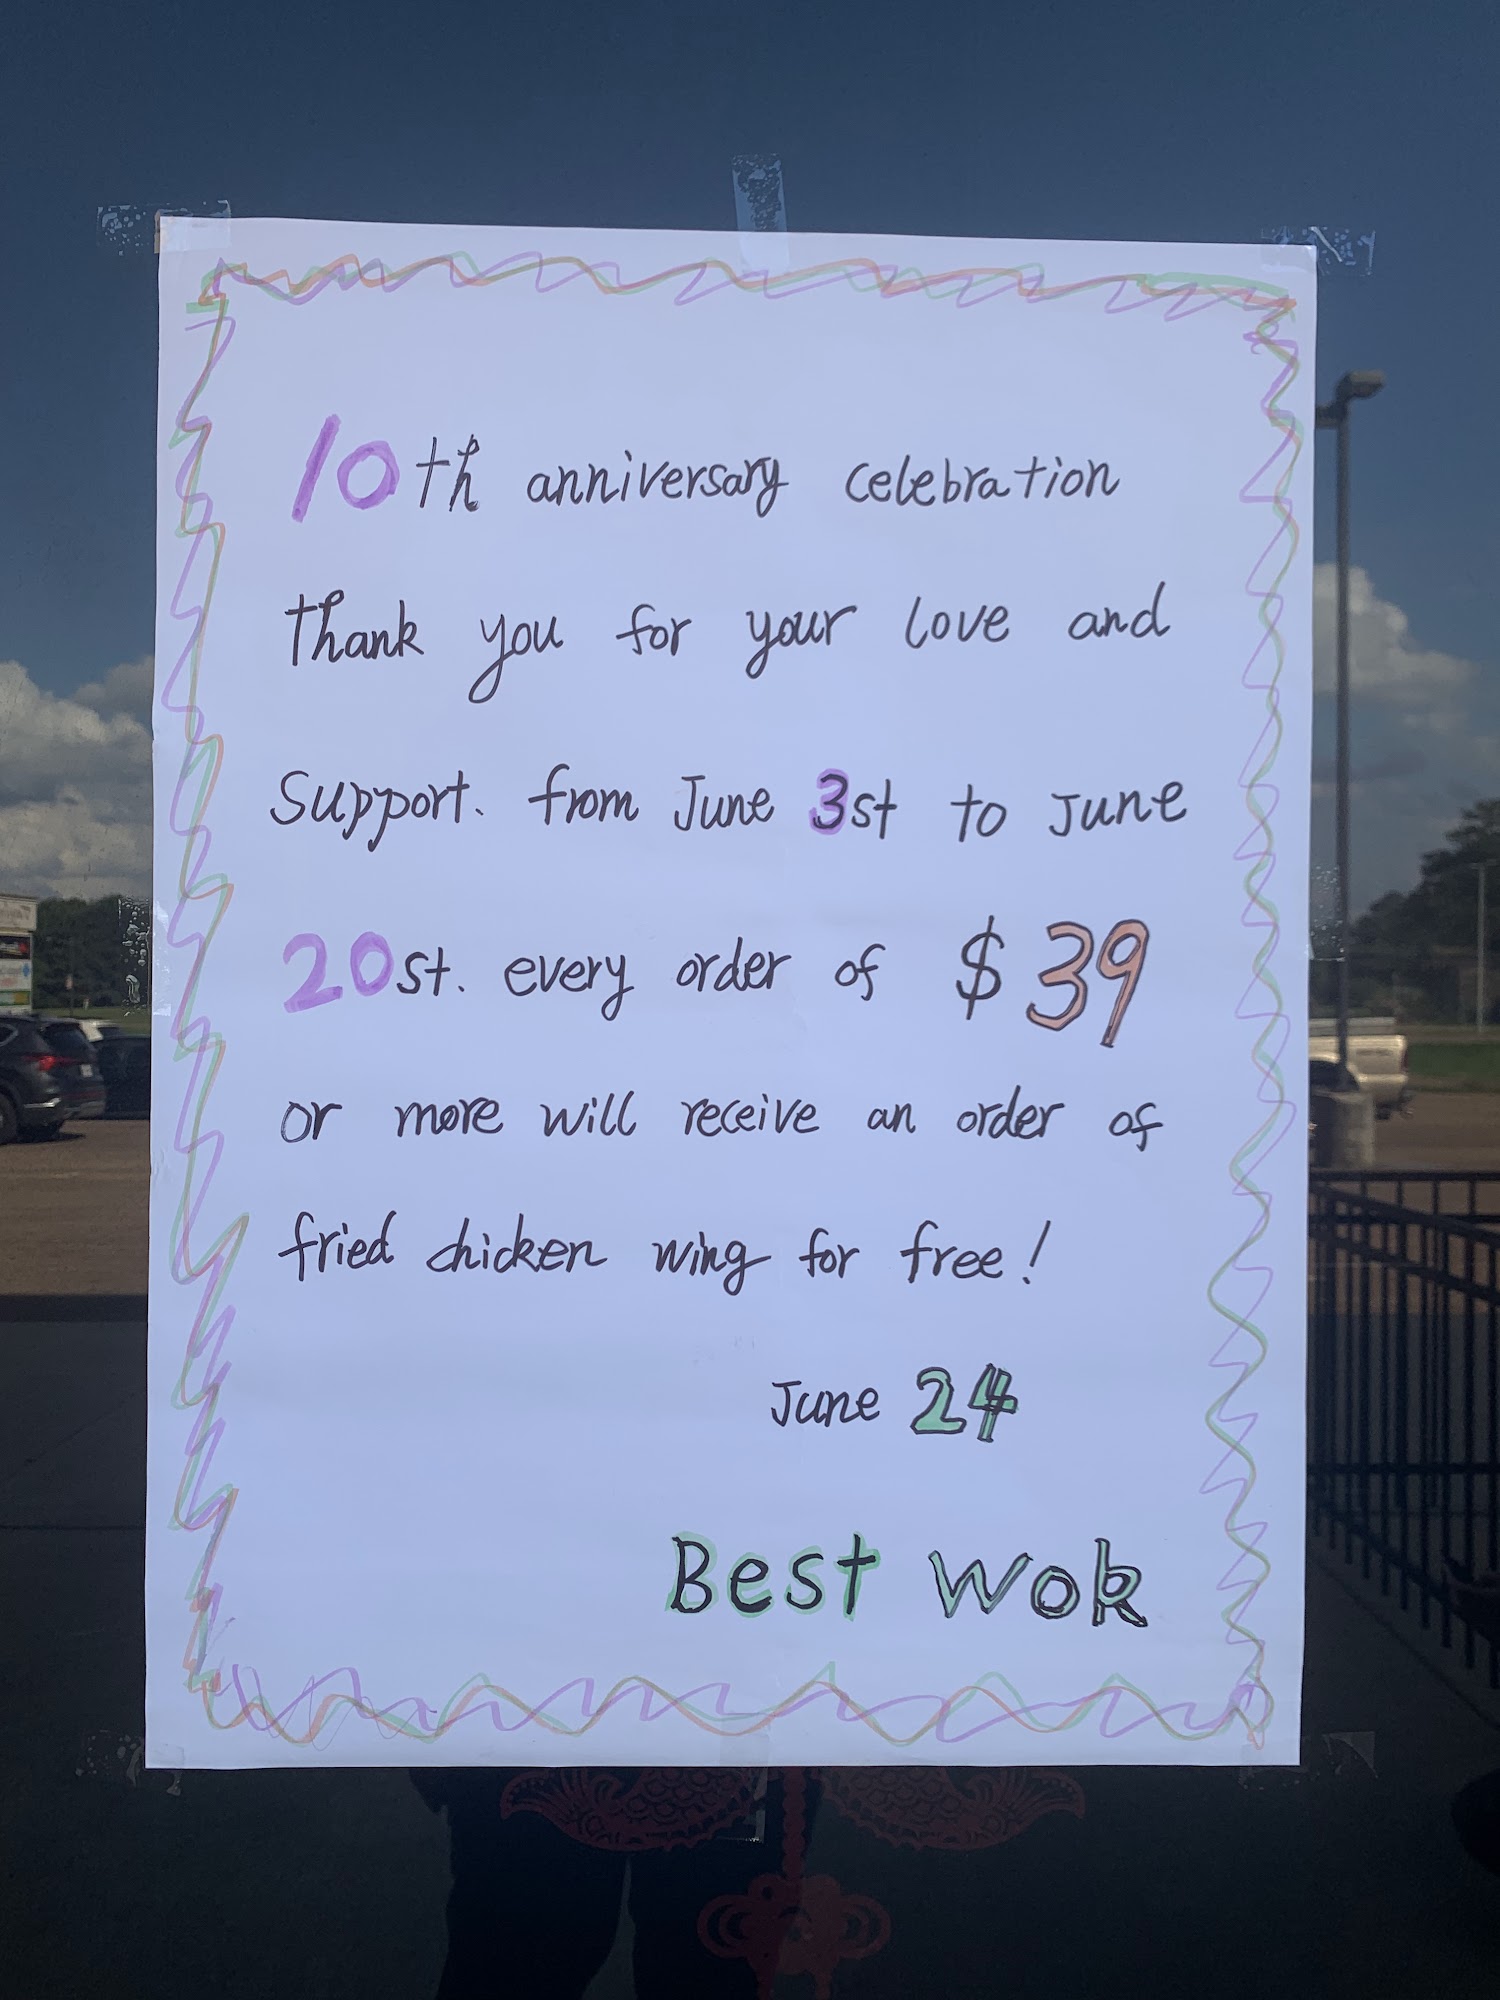 10th anniversary celebration
Thank you for your love and
Support. from June 3st to June
20st. every order of $39
or more will receive an order of
fried chicken wing for free!
June 24
Best Wok